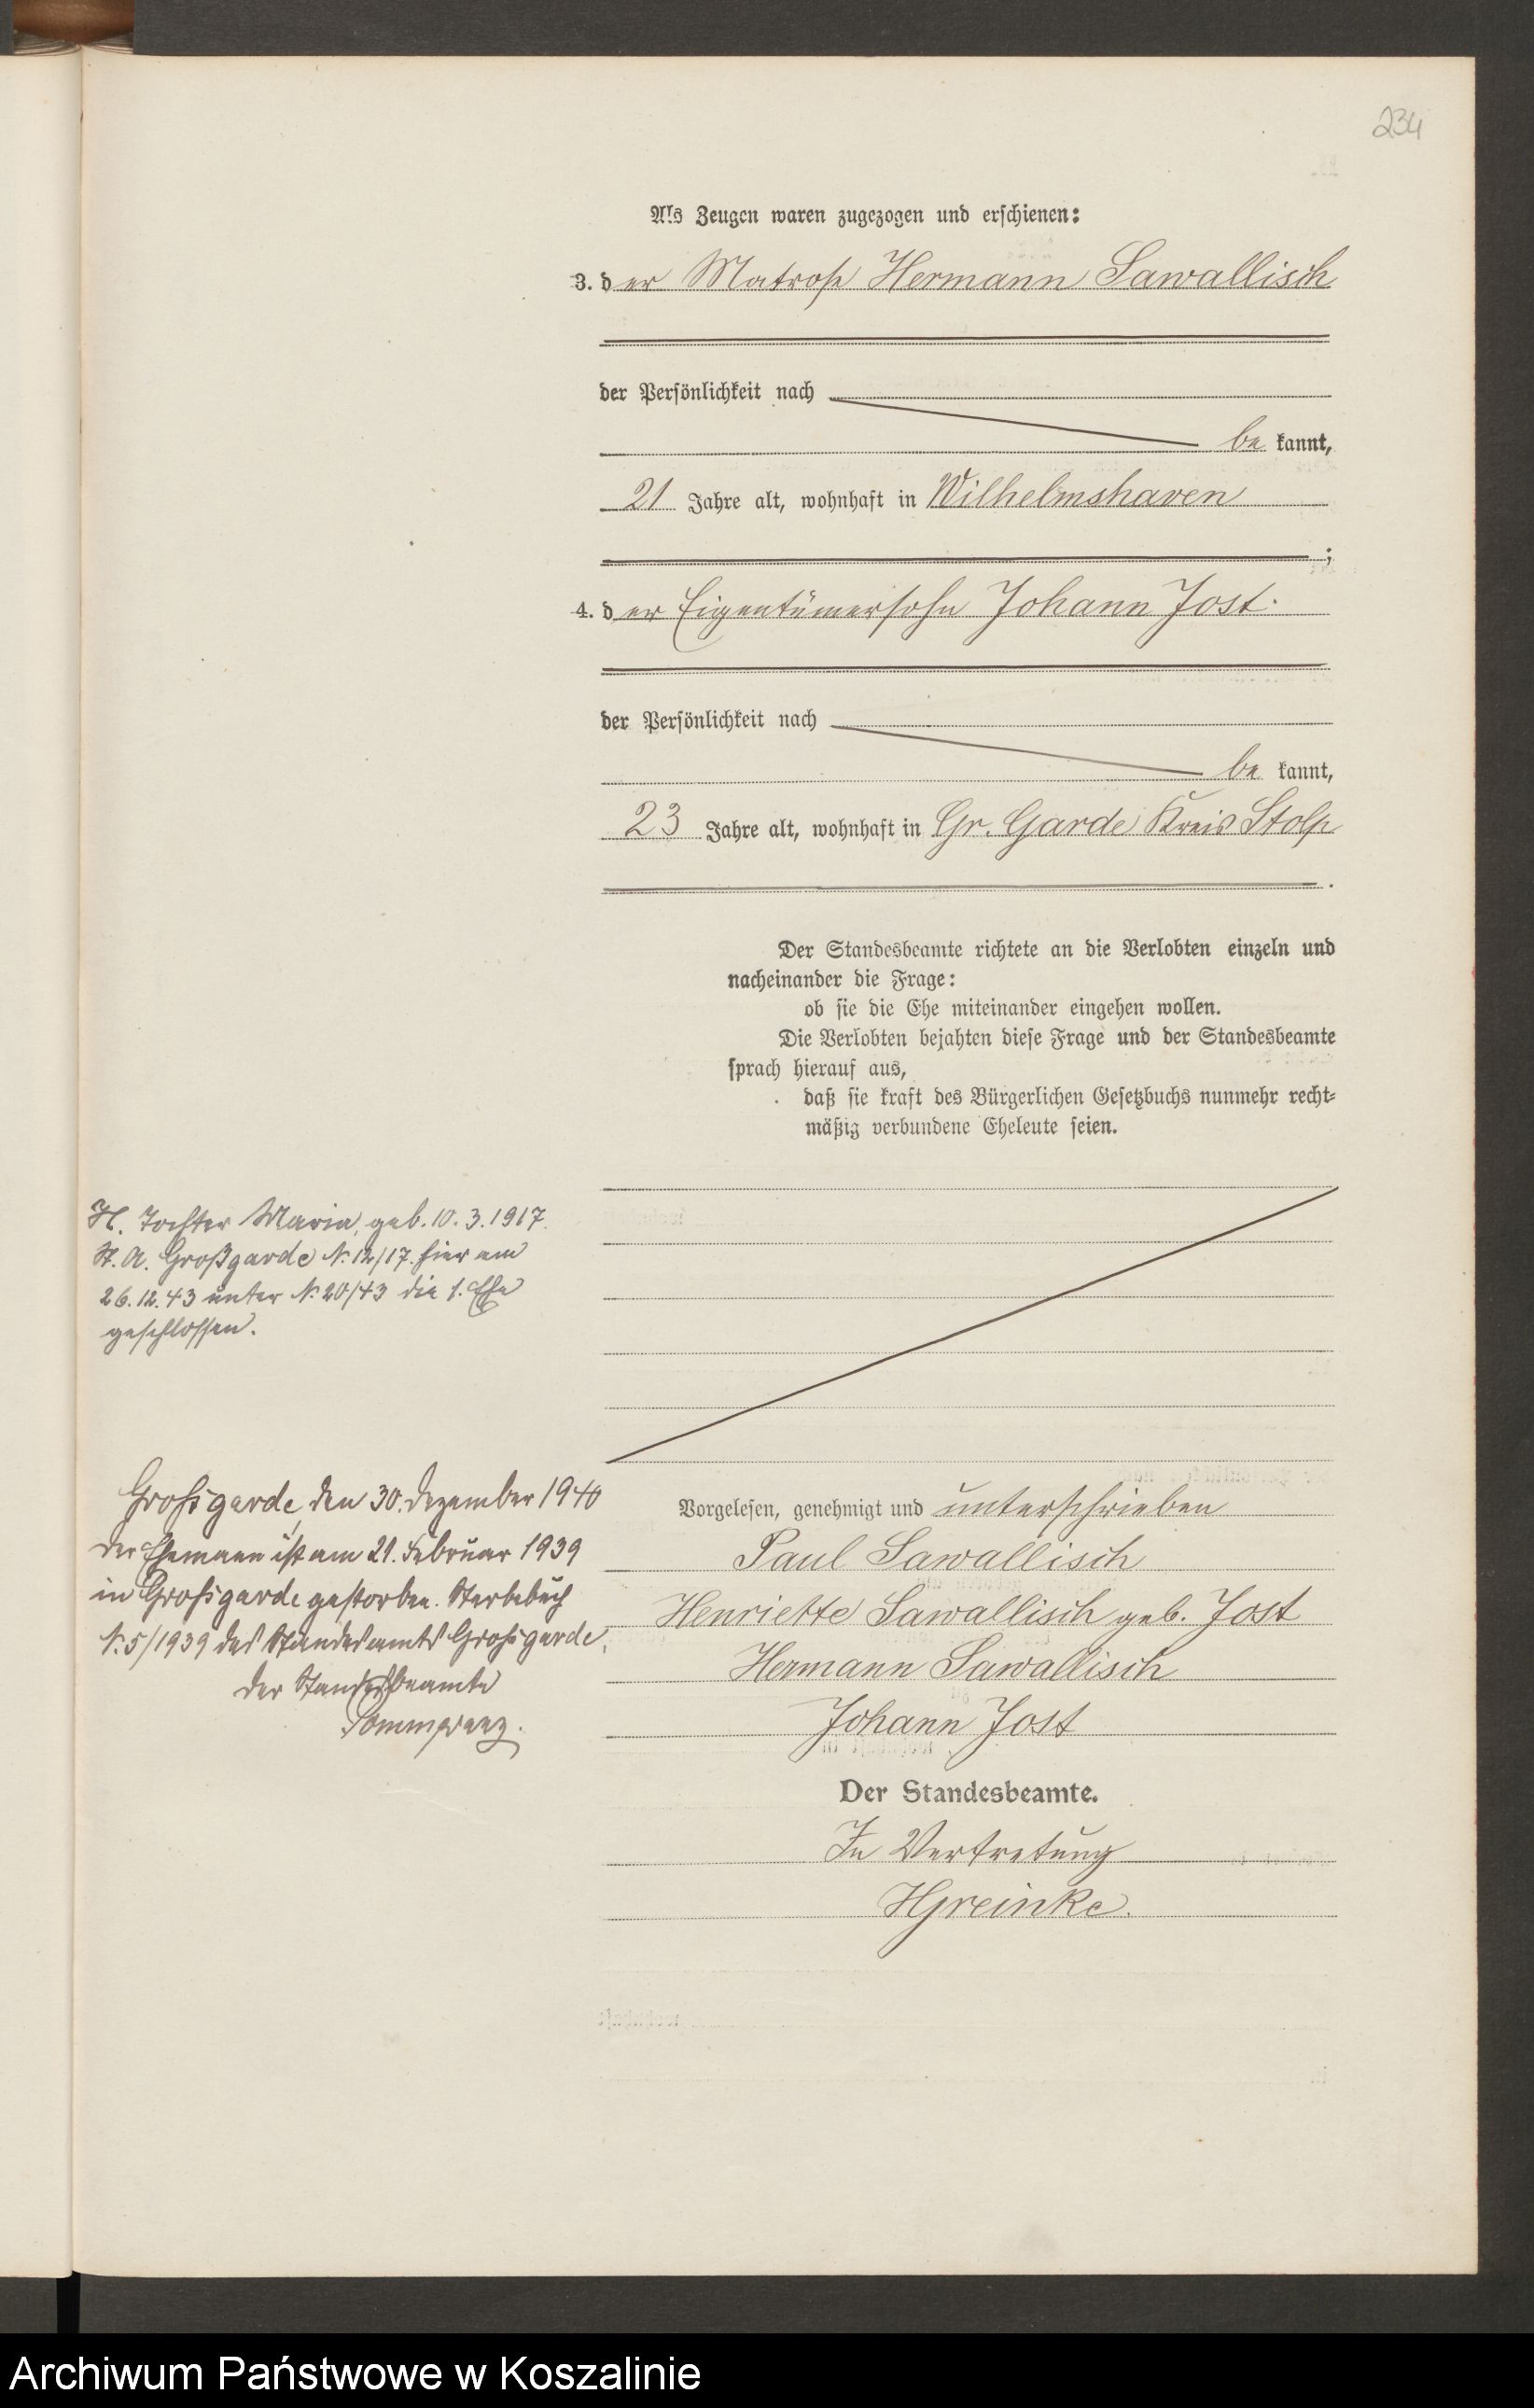 234
Als Zeugen waren zugezogen und erschienen:
3. der Matrose Hermann Sawallisch
der Persönlichkeit nach
be kannt,
21 Jahre alt, wohnhaft in Wilhelmshaven
;
4. der Eigentümersohn Johann Jost
der Persönlichkeit nach
be kannt,
23 Jahre alt, wohnhaft in Gr. Garde Kreis Stolp
.
Der Standesbeamte richtete an die Verlobten einzeln und
nacheinander die Frage:
ob sie die Ehe miteinander eingehen wollen.
Die Verlobten bejahten diese Frage und der Standesbeamte
sprach hierauf aus,
daß sie kraft des Bürgerlichen Gesetzbuchs nunmehr recht-
mäßig verbundene Eheleute seien.
Tochter Maria, geb. 10. 3. 1917.
St. A. Großgarde N. 12/17. hier am
26. 12. 43 unter N. 20/43 die 1. Ehe
geschlossen.
Grossgarde, den 30. Dezember 1940
Der Ehemann ist am 21. Februar 1939
in Grossgarde gestorben. Sterbebuch
N. 5/1939 des Standesamts Grossgarde.
Der Standesbeamte
Vorgelesen, genehmigt und unterschrieben
Paul Sawallisch
Henriette Sawallisch geb. Jost
Hermann Sawallisch
Johann Jost
Der Standesbeamte.
In Vertretung
HGreinke.
Archiwum Państwowe w Koszalinie